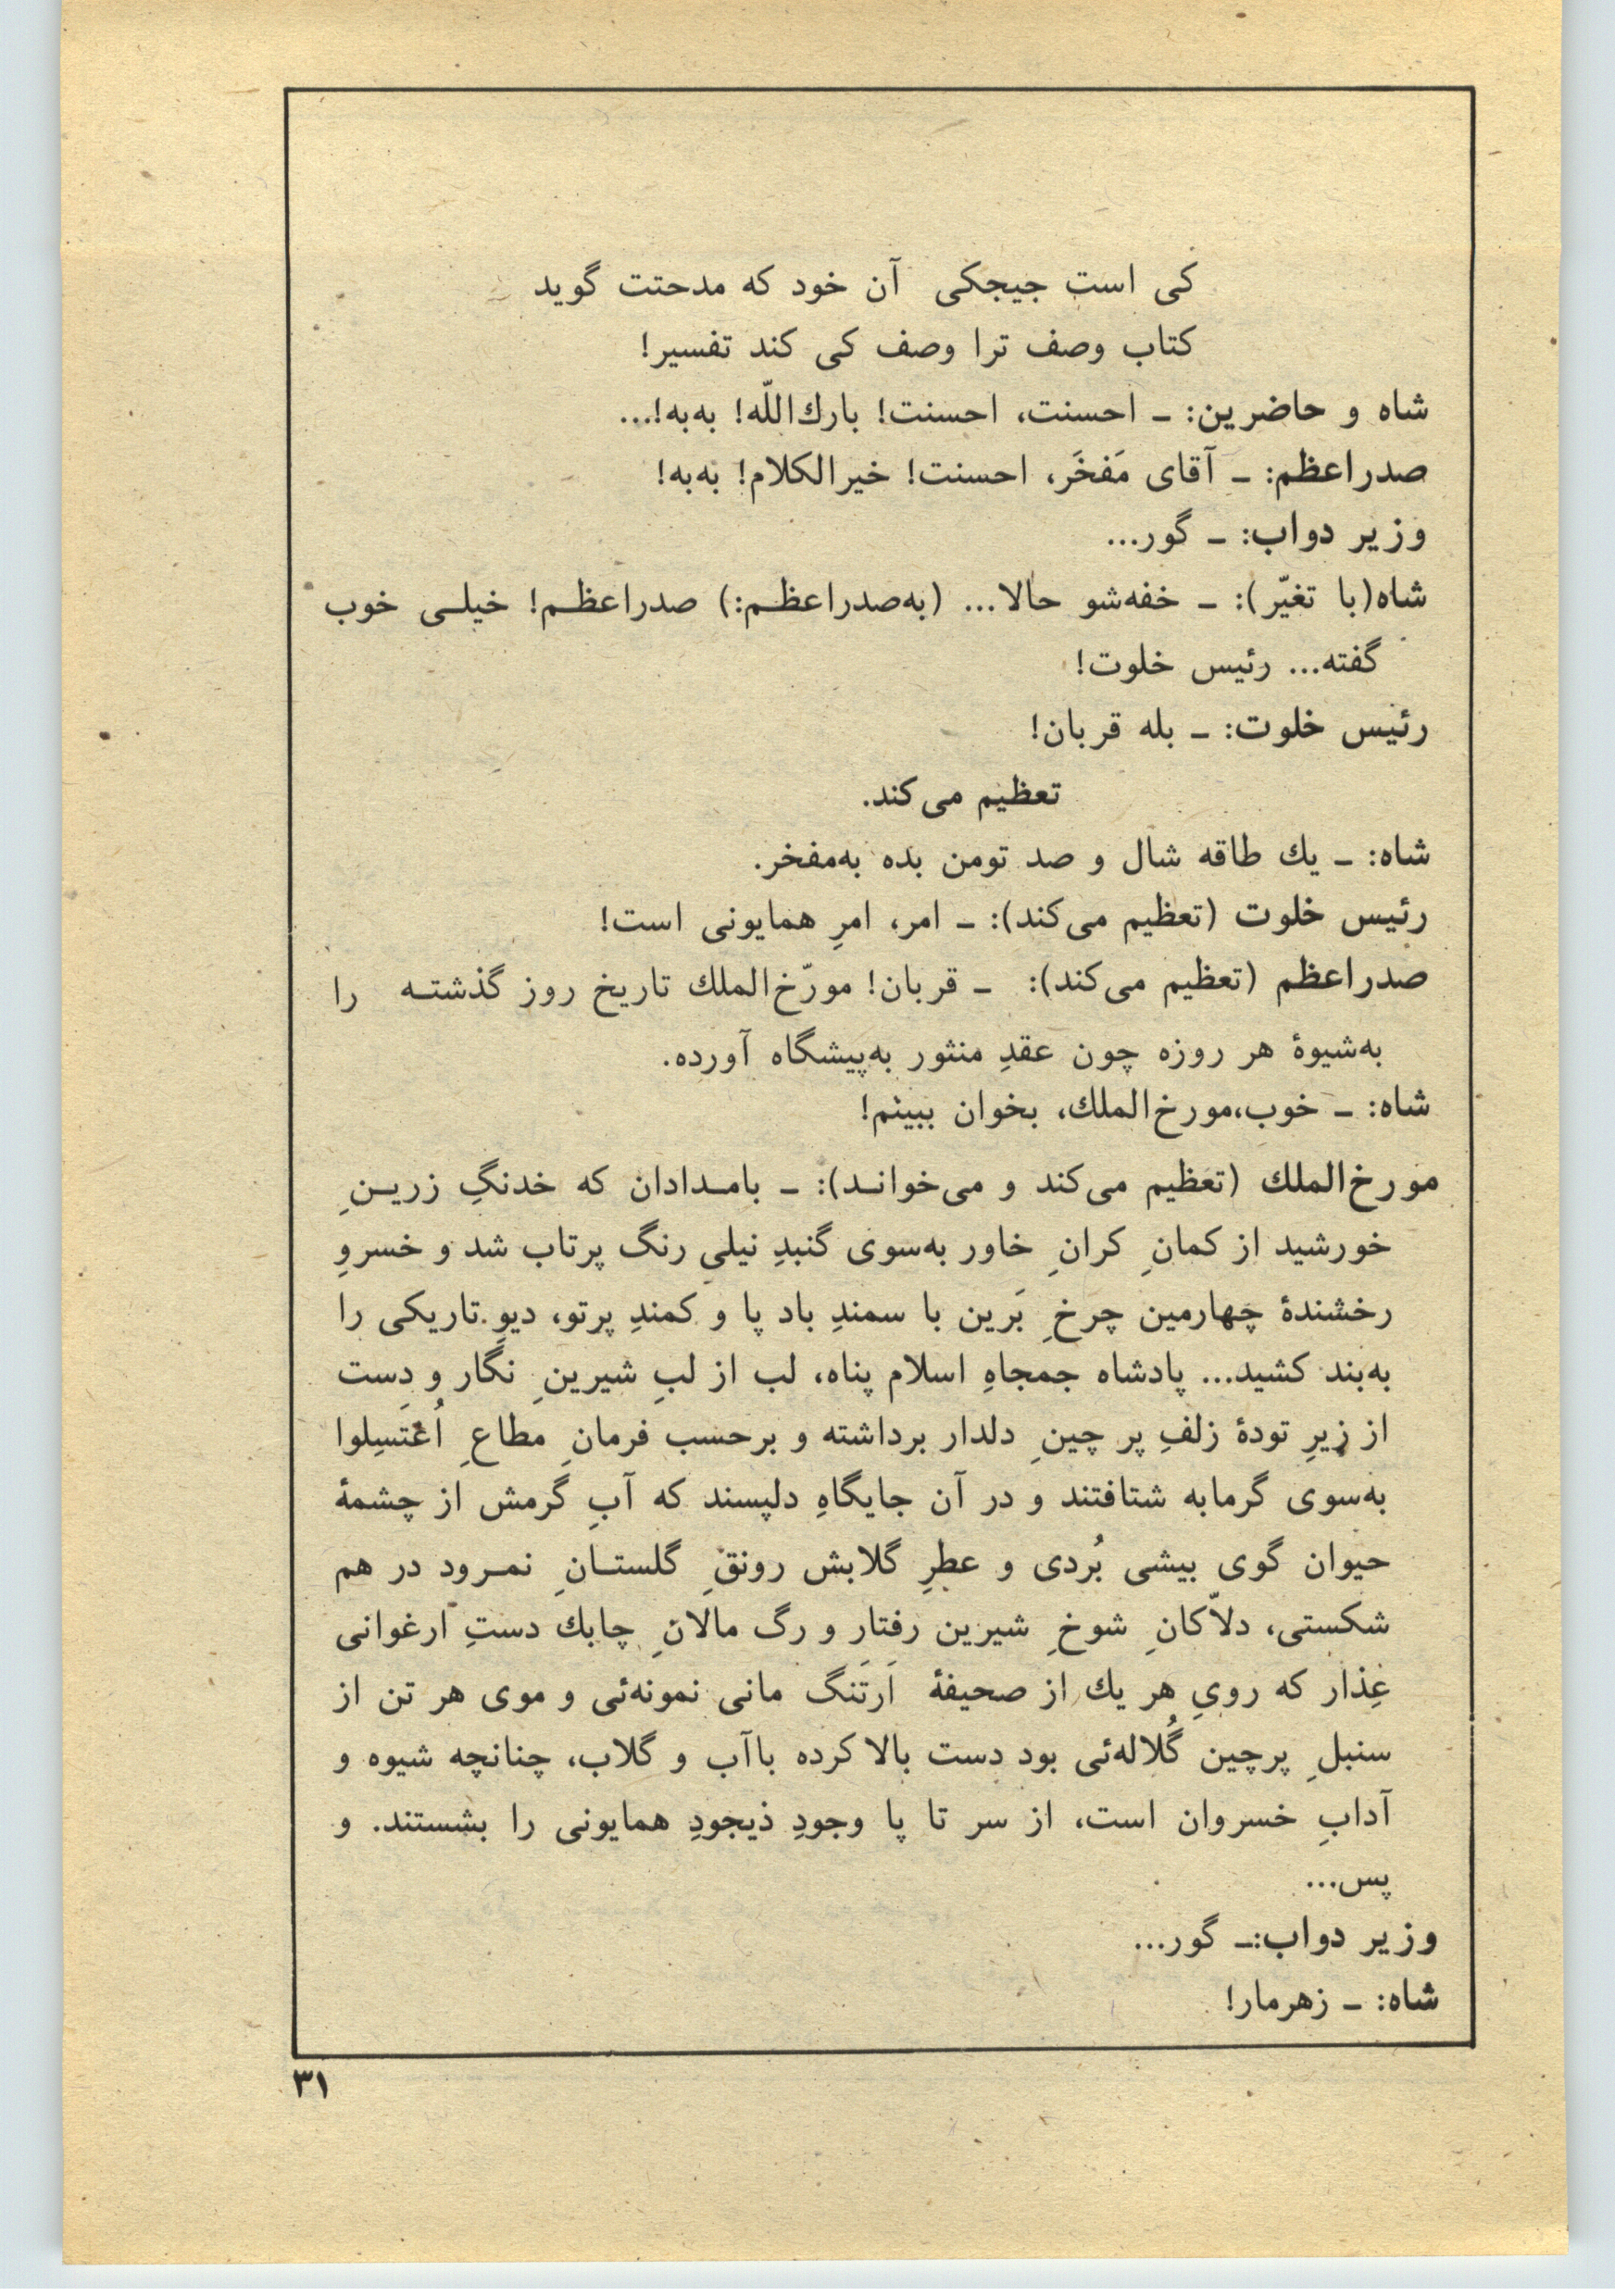 کی است جیجکی آن خود که مدحتت گوید
کتاب وصف ترا وصف کی کند تفسیر!
شاه و حاضرین: ـ احسنت، احسنت! بارك‌اللّه! به‌به!...
صدراعظم: ـ آقای مَفخَر، احسنت! خیرالکلام! به‌به!
وزیر دواب: ـ گور...
شاه(با تغیّر): ـ خفه‌شو حالا... (به‌صدراعظـم:) صدراعظـم! خیلـی خوب
گفته... رئیس خلوت!
رئیس خلوت: ـ بله قربان!
تعظیم می‌کند.
شاه: ـ یك طاقه شال و صد تومن بده به‌مفخر.
رئیس خلوت (تعظیم می‌کند): ـ امر، امرِ همایونی است!
صدراعظم (تعظیم می‌کند): ـ قربان! مورّخ‌الملك تاریخ روز گذشتـه را
به‌شیوهٔ هر روزه چون عقدِ منثور به‌پیشگاه آورده.
شاه: ـ خوب،مورخ‌الملك، بخوان ببینم!
مورخ‌الملك (تعظیم می‌کند و می‌خوانـد): ـ بامـدادان که خدنگِ زریـنِ
خورشید از کمانِ کرانِ خاور به‌سوی گنبدِ نیلی رنگ پرتاب شد و خسروِ
رخشندهٔ چهارمین چرخِ بَرین با سمندِ باد پا و کمندِ پرتو، دیوِ تاریکی را
به‌بند کشید... پادشاه جمجاهِ اسلام پناه، لب از لبِ شیرینِ نگار و دست
از زیرِ تودهٔ زلفِ پر چینِ دلدار برداشته و برحسب فرمانِ مطاعِ اُغْتَسِلوا
به‌سوی گرمابه شتافتند و در آن جایگاهِ دلپسند که آبِ گرمش از چشمهٔ
حیوان گوی بیشی بُردی و عطرِ گلابش رونقِ گلستـانِ نمـرود در هم
شکستی، دلاّکانِ شوخِ شیرین رفتار و رگ مالانِ چابك دستِ ارغوانی
عِذار که رویِ هر یك از صحیفهٔ اَرتَنگ مانی نمونه‌ئی و موی هر تن از
سنبلِ پرچین گُلاله‌ئی بود دست بالا کرده باآب و گلاب، چنانچه شیوه و
آدابِ خسروان است، از سر تا پا وجودِ ذیجودِ همایونی را بشستند. و
پس...
وزیر دواب:ـ گور...
شاه: ـ زهرمار!
۳۱